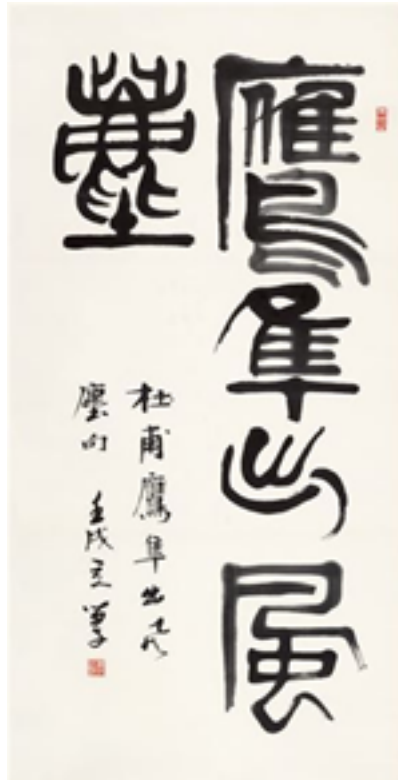 鹰隼出風
塵
杜甫鷹隼出風
塵句 壬戌立翁